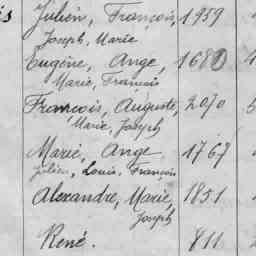 Julien, François, 1959
Joseph, Marie
Eugène, Ange, 1680
Marie, Francois
Francois, Auguste, 2070
Marie, Joseph
Marie, Ange 1767
Julien, Louis, François
Alexandre, Marie, 1851
Joseph
René. 811